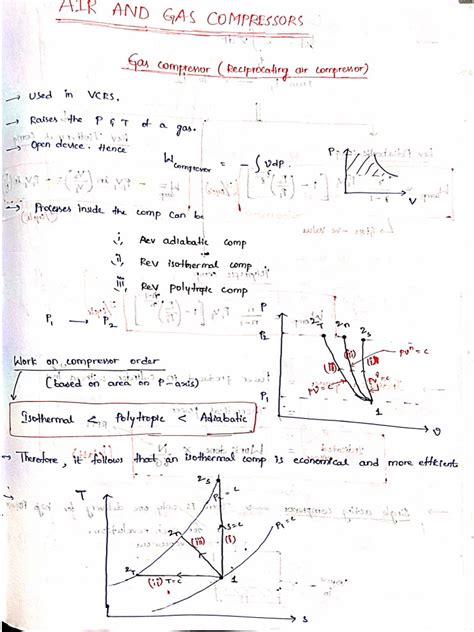 AIR AND GAS COMPRESSORS
Gas compressor (Reciprocating air compressor)
→ Used in VCRS.
→ Raises the P & T of a gas.
→ Open device. Hence
W compressor = - ∫ vdP.
P
V
→ Processes inside the comp can be
i, Rev adiabatic comp
ii, Rev isothermal comp
iii, Rev polytropic comp
P1 → P2
P
P2
2T 2n 2s
(ii) (iii) (i)
PVⁿ = c
PV = c
P1
1
v
Work on compressor order
(based on area on P-axis)
Isothermal < Polytropic < Adiabatic
→ Therefore, it follows that an isothermal comp is economical and more efficient
T
2s
P2 = c
s = c
P1 = c
2n
(iii)
(i)
2T
(ii) T = c
1
s